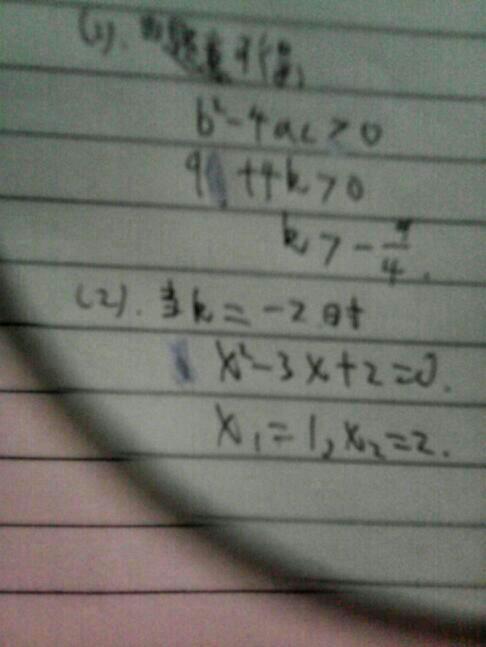 (1). 由题意可得,
b²-4ac>0
9 +4k>0
k>-9/4.
(2). 当k=-2时
x²-3x+2=0.
x₁=1, x₂=2.